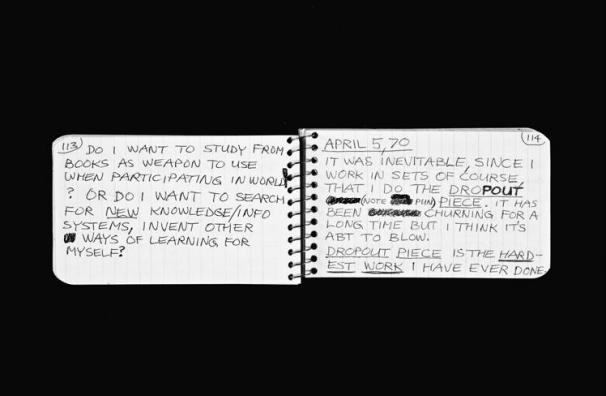 113
DO I WANT TO STUDY FROM
BOOKS AS WEAPON TO USE
WHEN PARTICIPATING IN WORLD
? OR DO I WANT TO SEARCH
FOR NEW KNOWLEDGE/INFO
SYSTEMS, INVENT OTHER
WAYS OF LEARNING FOR
MYSELF?
114
APRIL 5, 70
IT WAS INEVITABLE, SINCE I
WORK IN SETS OF COURSE
THAT I DO THE DROPOUT
(NOTE PUN) PIECE. IT HAS
BEEN CHURNING FOR A
LONG TIME BUT I THINK IT'S
ABT TO BLOW.
DROPOUT PIECE IS THE HARD-
EST WORK I HAVE EVER DONE